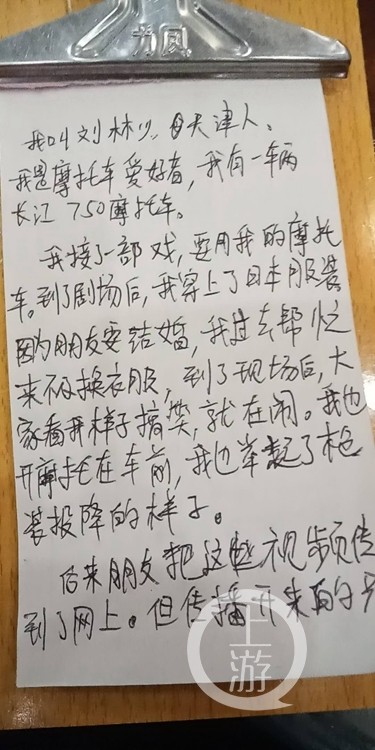 力风
我叫刘林，天津人。
我是摩托车爱好者，我有一辆
长江750摩托车。
我接了一部戏，要用我的摩托
车。到了剧场后，我穿上了日本服装
因为朋友要结婚，我过去帮忙
来不及换衣服，到了现场后，大
家看我样子搞笑，就在闹。我也
开摩托在车前，我也举起了枪
装投降的样子。
后来朋友把这些视频传
到了网上。但传播开来的
上游